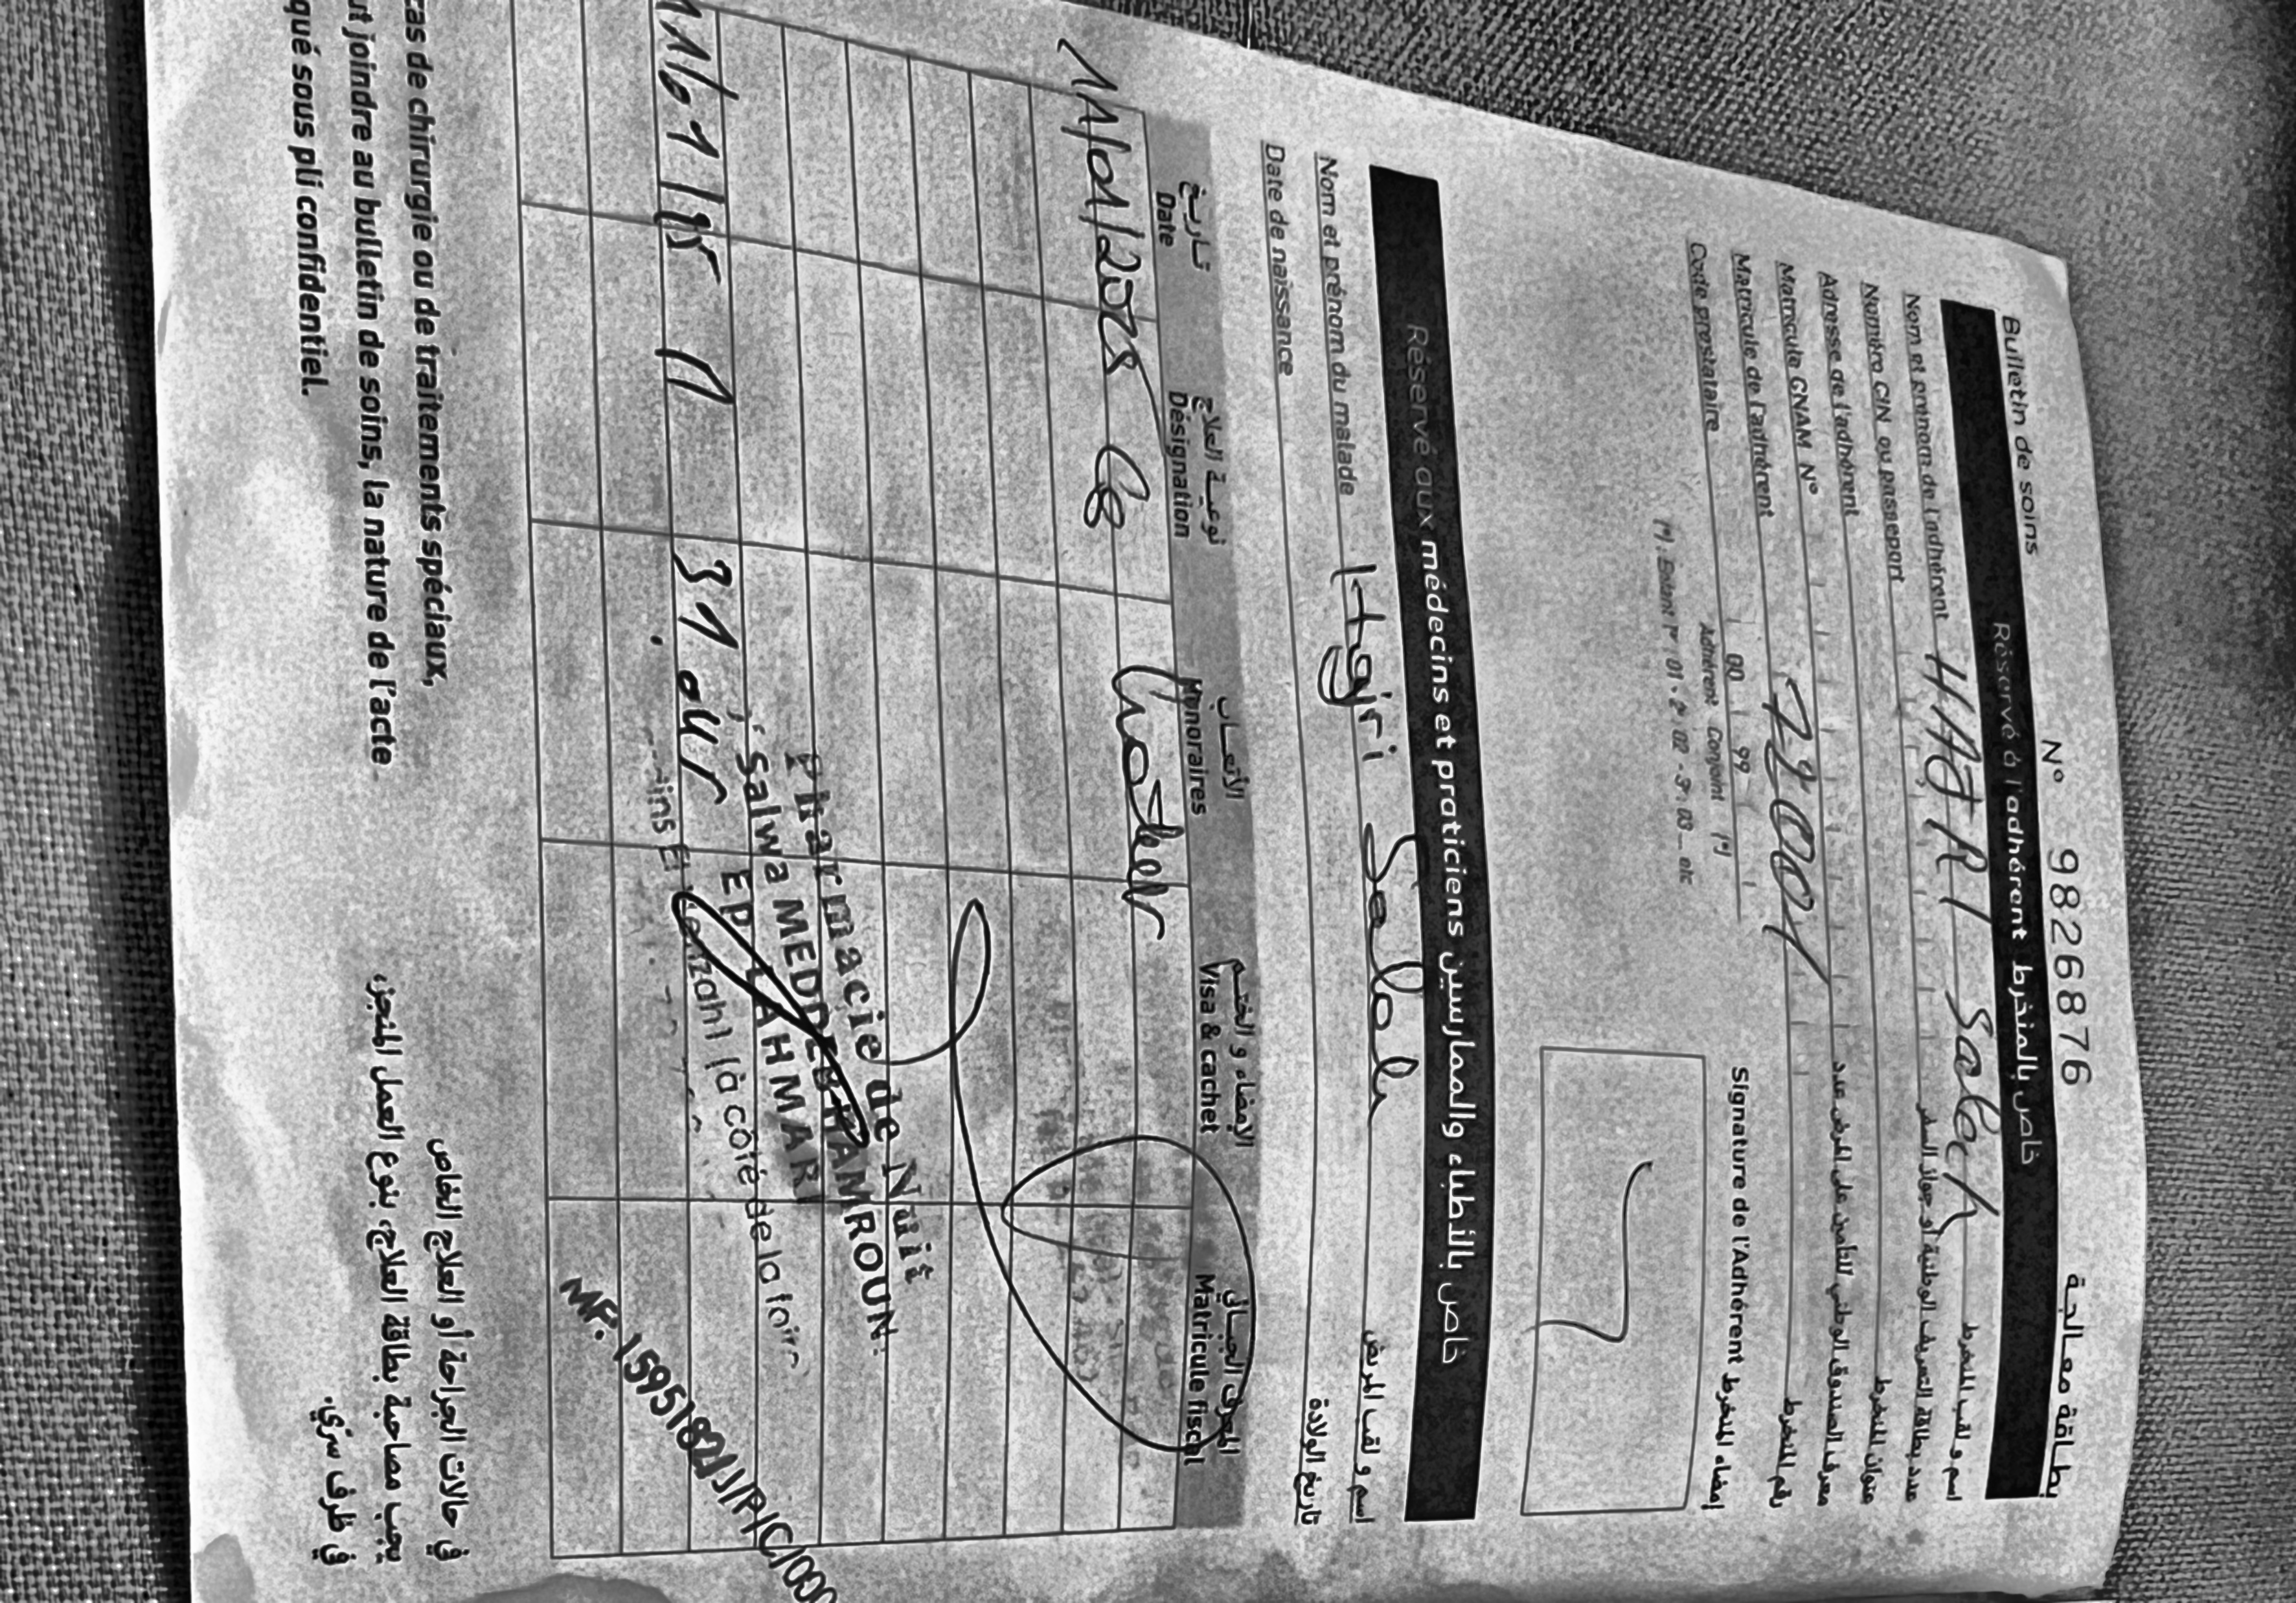 Bulletin de soins N° 9826876 بطاقة معالجة
Réservé à l'adhérent خاص بالمنخرط
Nom et prénom de l'adhérent HAJRI Saleh اسم و لقب المنخرط
Numéro CIN ou passeport عدد بطاقة التعريف الوطنية أو جواز السفر
Adresse de l'adhérent عنوان المنخرط
Matricule CNAM N° معرف الصندوق الوطني للتأمين على المرض عدد
Matricule de l'adhérent رقم المنخرط
Code prestataire 00 99
Adhérent Conjoint (*)
(*) : Enfant 1er : 01 - 2 : 02 - 3 : 03 ... etc
Signature de l'Adhérent إمضاء المنخرط
Réservé aux médecins et praticiens خاص بالأطباء والممارسين
Nom et prénom du malade Hajri Saleh اسم و لقب المريض
Date de naissance تاريخ الولادة
تاريخ نوعية العلاج الأتعاب الإمضاء و الختم المعرف الجبائي
Date Désignation Honoraires Visa & cachet Matricule fiscal
Pharmacie de Nuit
Salwa MEDDEB HAMROUN
EP LAHMAR
à côté de la foire
MF: 1595182/J/P/C/000
cas de chirurgie ou de traitements spéciaux,
ut joindre au bulletin de soins, la nature de l'acte
qué sous pli confidentiel.
في حالات الجراحة أو العلاج الخاص
يجب مصاحبة بطاقة العلاج، بنوع العمل المنجز،
في ظرف سرّي.